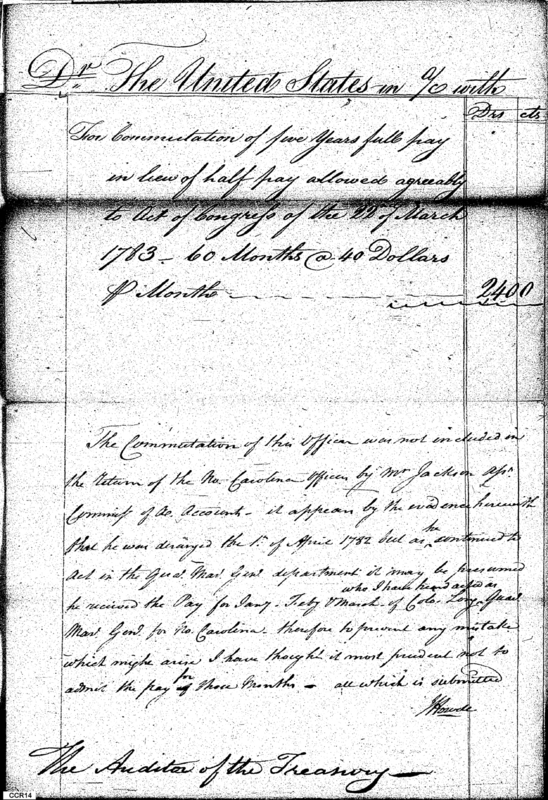 Dr. The United States in a/c with
Drs cts
For Commutation of five Years full pay
in lieu of half pay allowed agreeably
to Act of Congress of the 22d of March
1783 - 60 Months @ 40 Dollars
P Month 2400
The Commutation of this Officer was not included in
the return of the No. Carolina Officers by Mr Jackson Asst
Commiss of Ao. Accounts - it appears by the evidence herewith
that he was deranged the 1st of April 1782 but as he continued to
Act in the Quar. Mar. Genl department it may be presumed
he received the Pay for Jany. Feby & March of Colo. Long Quar
who I have heard acted as
Mar Genl. for No. Carolina. therefore to prevent any mistake
which might arise I have thought it most prudent not to
admit the pay for those Months - all which is submitted
JHowell
The Auditor of the Treasury
CCR14